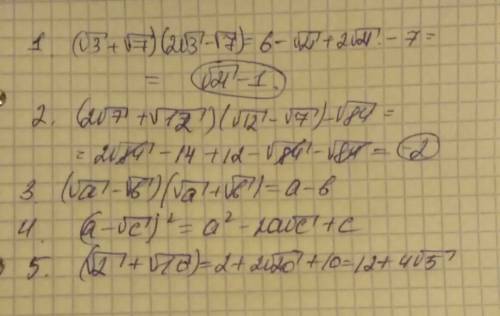 1. (√3 + √7)(2√3 - √7) = 6 - √21 + 2√21 - 7 =
= √21 - 1.
2. (2√7 + √12)(√12 - √7) - √84 =
= 2√84 - 14 + 12 - √84 - √84 = -2
3 (√a - √b)(√a + √b) = a - b
4. (a - √c)² = a² - 2a√c + c
5. (√2 + √10) = 2 + 2√20 + 10 = 12 + 4√5